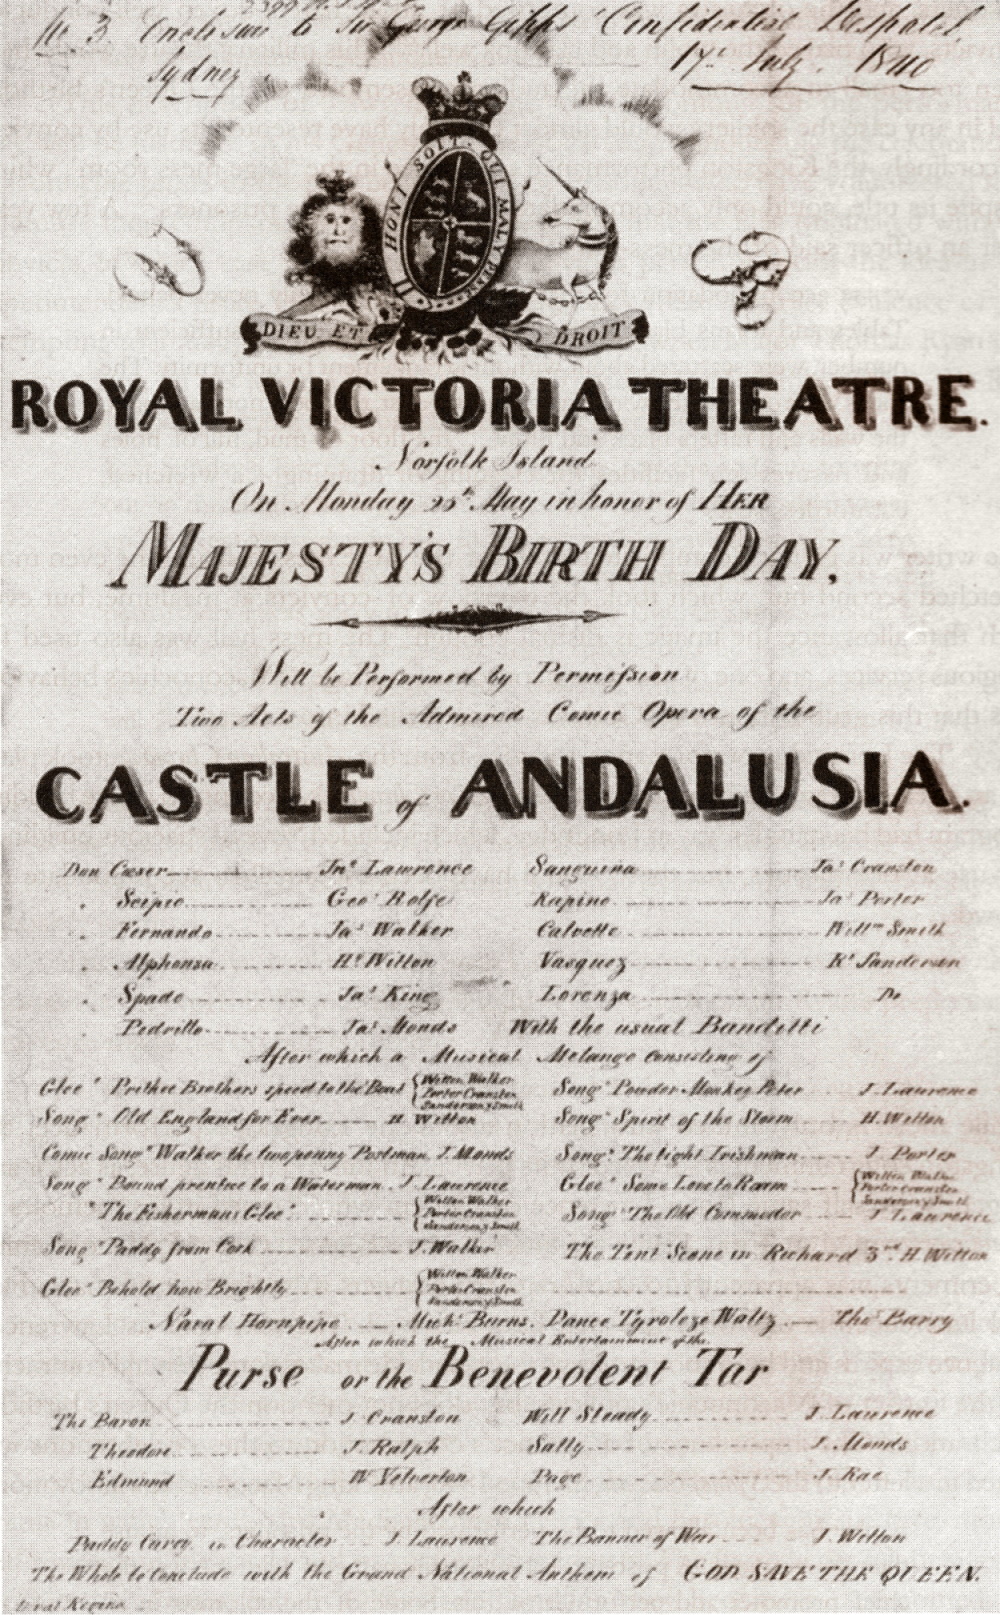 No 3 Enclosure to Sir George Gipps' Confidential Despatch
Sydney 17th July 1840
HONI SOIT QUI MAL Y PENSE
DIEU ET DROIT
V R
ROYAL VICTORIA THEATRE.
Norfolk Island
On Monday 25th May in honor of HER
MAJESTY'S BIRTH DAY,
Will be Performed by Permission
Two Acts of the Admired Comic Opera of the
CASTLE of ANDALUSIA.
Don Cæser Jno Lawrence Sanguina Jas Cranston
" Scipio Geo Rolfe Rapino Jas Porter
" Fernando Jas Walker Calvette Willm Smith
" Alphonza Hy Witton Vasquez Rt Sanderson
" Spado Jas King Lorenza Do
" Pedrillo Jas Monds With the usual Banditti
After which a Musical Melange consisting of
Glee " Prithee Brothers speed to the Boat { Witton Walker Porter Cranston Sanderson & Smith Song " Powder Monkey Peter J. Laurence
Song " Old England for Ever H Witton Song " Spirit of the Storm H. Witton
Comic Song " Walker the twopenny Postman J. Monds Song " The tight Irishman J. Porter
Song " Bound prentice to a Waterman J Laurence Glee " Some Love to Roam { Witton Walker Porter Cranston Sanderson & Smith
" The Fishermans Glee " { Witton Walker Porter Cranston Sanderson & Smith Song " The Old Commodor J Laurence
Song " Paddy from Cork J. Walker The Tent Scene in Richard 3rd H. Witton
Glee " Behold how Brightly { Witton Walker Porter Cranston Sanderson & Smith
Naval Hornpipe Michl Burns. Dance Tyroleze Waltz Thos Barry
After which the Musical Entertainment of the
Purse or the Benevolent Tar
The Baron J Cranston Will Steady J. Laurence
Theodore J. Ralph Sally J. Monds
Edmund W Yelverton Page J. Rae
After which
Paddy Carey in Character J. Laurence The Banner of War J. Witton
The Whole to Conclude with the Grand National Anthem of GOD SAVE THE QUEEN.
Regina